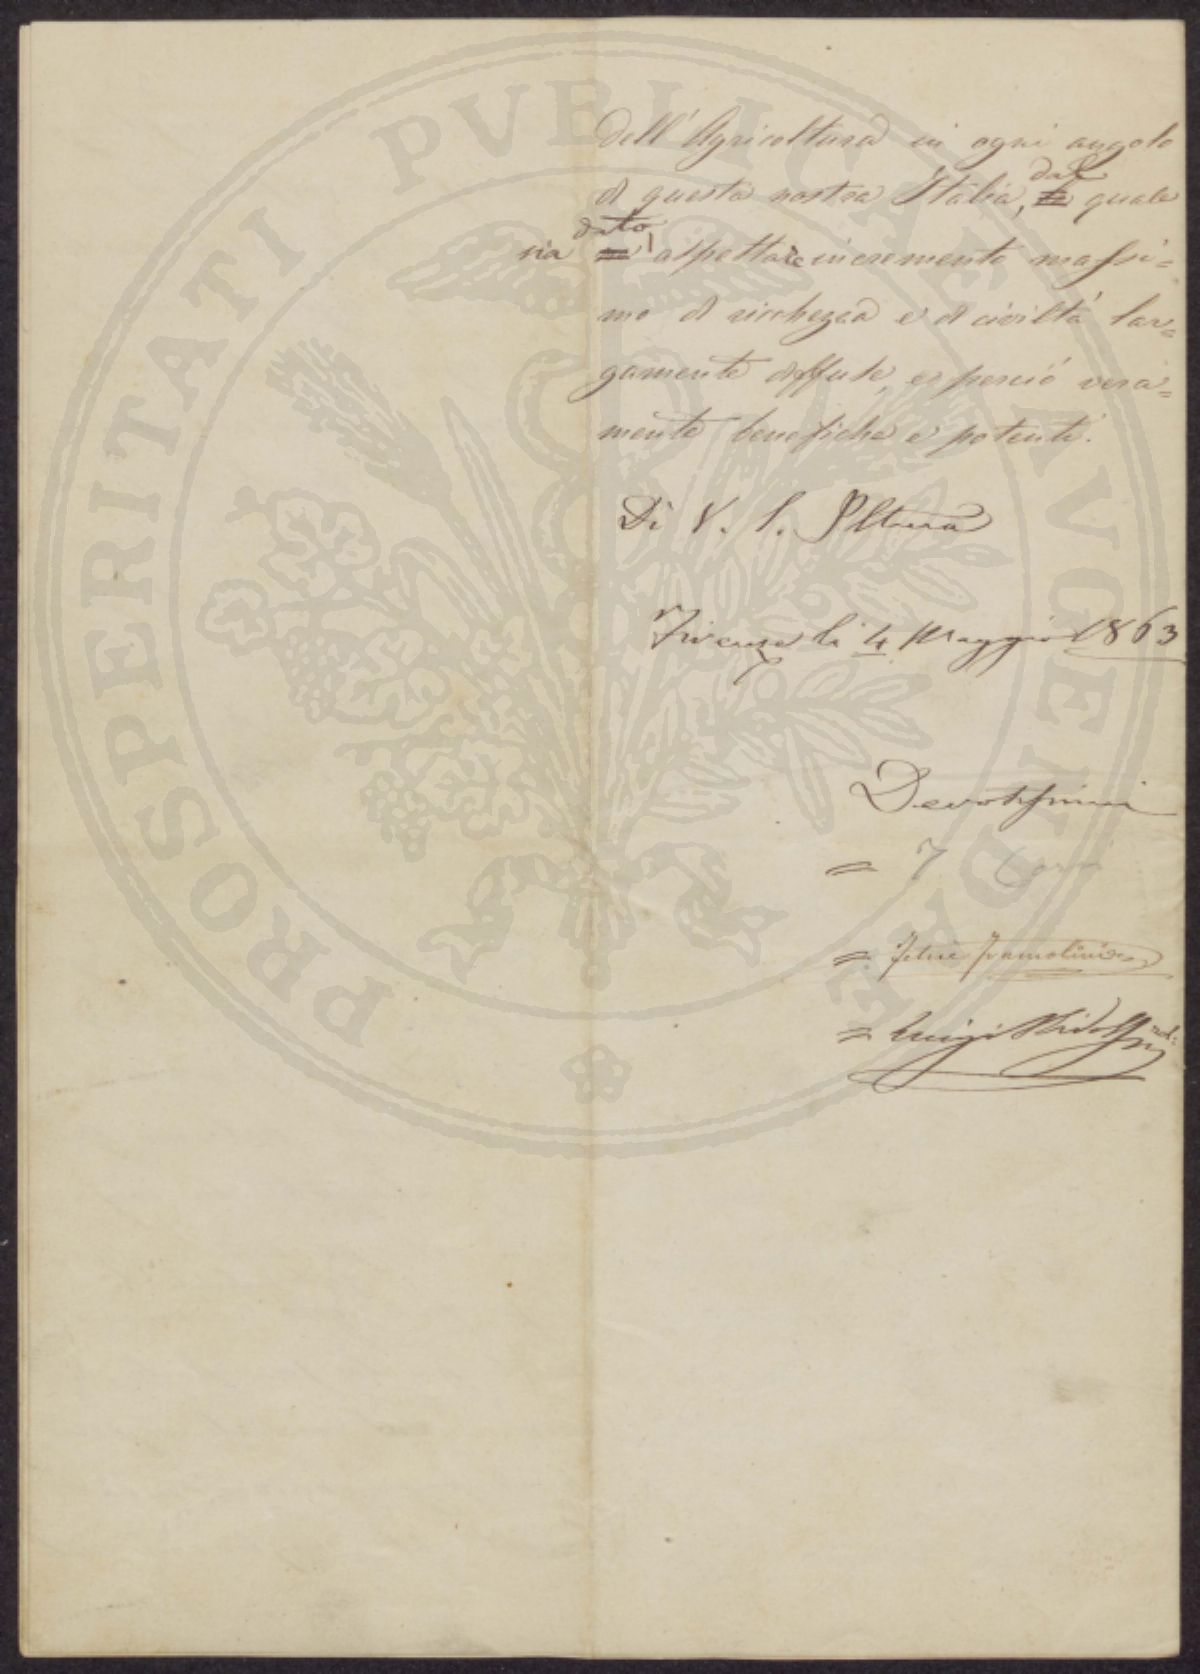 PROSPERITATI PVBLICAE AVGENDAE
dell'Agricoltura in ogni angolo
di questa nostra Italia, dal quale
sia dato aspettare incremento massi=
mo di ricchezza e di civiltà lar=
gamente diffuse, e perciò vera=
mente benefiche e potenti.
Di V. S. Illma
Firenze li 4 Maggio 1863
Devotissimi
= F. Carri
= Felice Francolini
= Luigi Ridolfi